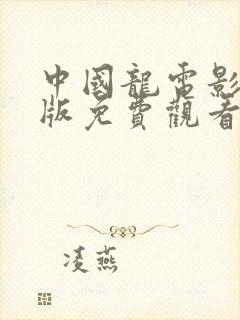 中國龍電影
版免費觀看
凌燕